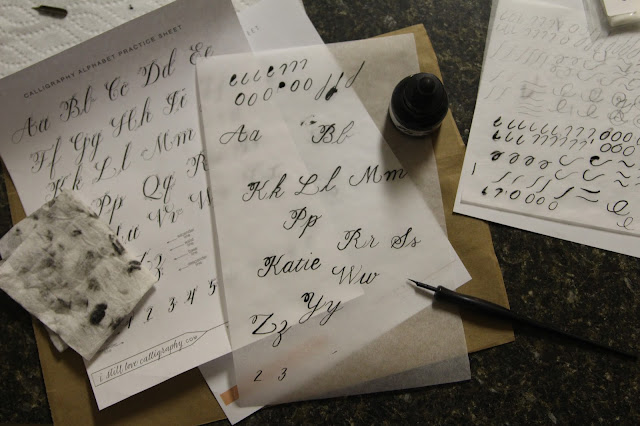 CALLIGRAPHY ALPHABET PRACTICE SHEET
Aa Bb Cc Dd Ee
Ff Gg Hh Ii
Kk Ll Mm
Pp Qq R
Vv W
1 2 3 4 5
i still love calligraphy.com
Aa Bb
Kk Ll Mm
Pp
Rr Ss
Katie
Ww
Yy
Zz
2 3